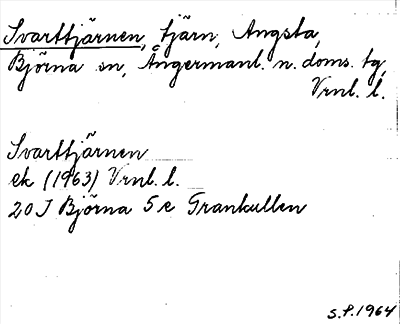 Svarttjärnen, tjärn, Angsta,
Björna sn, Ångermanl. n. doms. tg,
Vrnl. l.
Svarttjärnen
ek (1963) Vrnl. l.
20 J Björna 5 e Grankullen
S.P. 1964